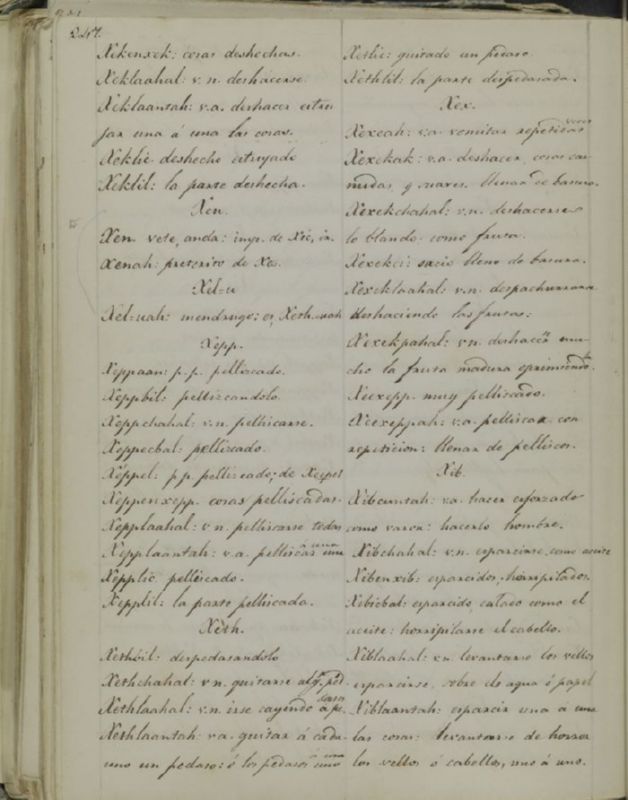 247.
Xekenxek: cosas deshechas.
Xeklaahal: v.n. deshacerse.
Xeklaantah: v.a. deshacer estru
jar una á una las cosas.
Xeklic deshecho estrujado
Xeklil: la parte deshecha.
Xen.
Xen. vete, anda: imp. de Xic, ir.
Xenah: preterito de Xe.
Xel=u
Xel=uah: mendrugo: es, Xeth.uah
Xepp.
Xeppaan: p.p. pellizcado.
Xeppbil: pellizcandolo.
Xeppchahal: v.n. pellizcarse.
Xeppecbal: pellizcado.
Xeppel: pp. pellizcado; de Xeppel
Xeppenxepp. cosas pellizcadas.
Xepplaahal: v.n. pellizcarse todos
Xepplaantah: v.a. pellizcar una á una
Xepplic pellizcado.
Xepplil: la parte pellizcada.
Xeth.
Xethbil: despedasandolo
Xethchahal: v.n. quitarse algn. ped
Xethlaahal: v.n. irse cayendo á pe.
Xethlaantah: v.a. quitar á cada
uno un pedaso: ó los pedasos uno á uno
Xethic: quitado un pedaso
Xethlil: la parte despedasada.
Xex.
Xexeah: v.a. vomitar repetidas veces
Xexekak: v.a. deshacer, cosas co-
midas, y suaves. llenar de basura.
Xexekchahal: v.n. deshacerse
lo blando como fruta.
Xexekci: sucio lleno de basura.
Xexeklaahal: v.n. despachurrarse
deshaciendo las frutas:
Xexekpahal: v.n. deshacerse mu-
cho la fruta madura oprimiendo.
Xexepp. muy pellizcado.
Xexeppah: v.a. pelliscar con
repeticion: llenar de pelliscos.
Xib.
Xibcuntah: v.a. hacer esforzado
como varon: hacerlo hombre.
Xibchahal: v.n. esparcirse, como aceite
Xibenxib: esparcidos, horripilados.
Xibicbal: esparcido, calado como el
aceite: horripilarse el cabello.
Xiblaahal: v.n. levantarse los vellos
esparcirse, sobre el agua ó papel
Xiblaantah: esparcir una á una
las cosas: levantarse de horror
los vellos ó cabellos, uno á uno.